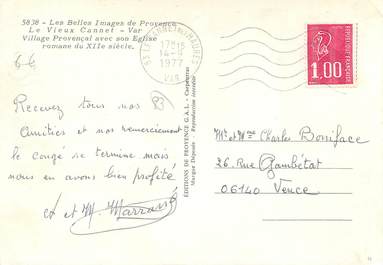 5838 - Les Belles Images de Provence
Le Vieux Cannet - Var
Village Provençal avec son Eglise
romane du XIIe siècle.
83 LE CANNET DES MAURES
17H15
1977
VAR
POSTES
1,00
REPUBLIQUE FRANÇAISE
83
Recevez tous nos
Amities et nos remerciement
le congé se termine mais
nous en avons bien profité
et M.
EDITIONS DE PROVENCE G.A.L. - Carpentras
Marque Déposée - Reproduction interdite
Mr et Mme Charles Boniface
26 Rue Gambetat
06140 Vence